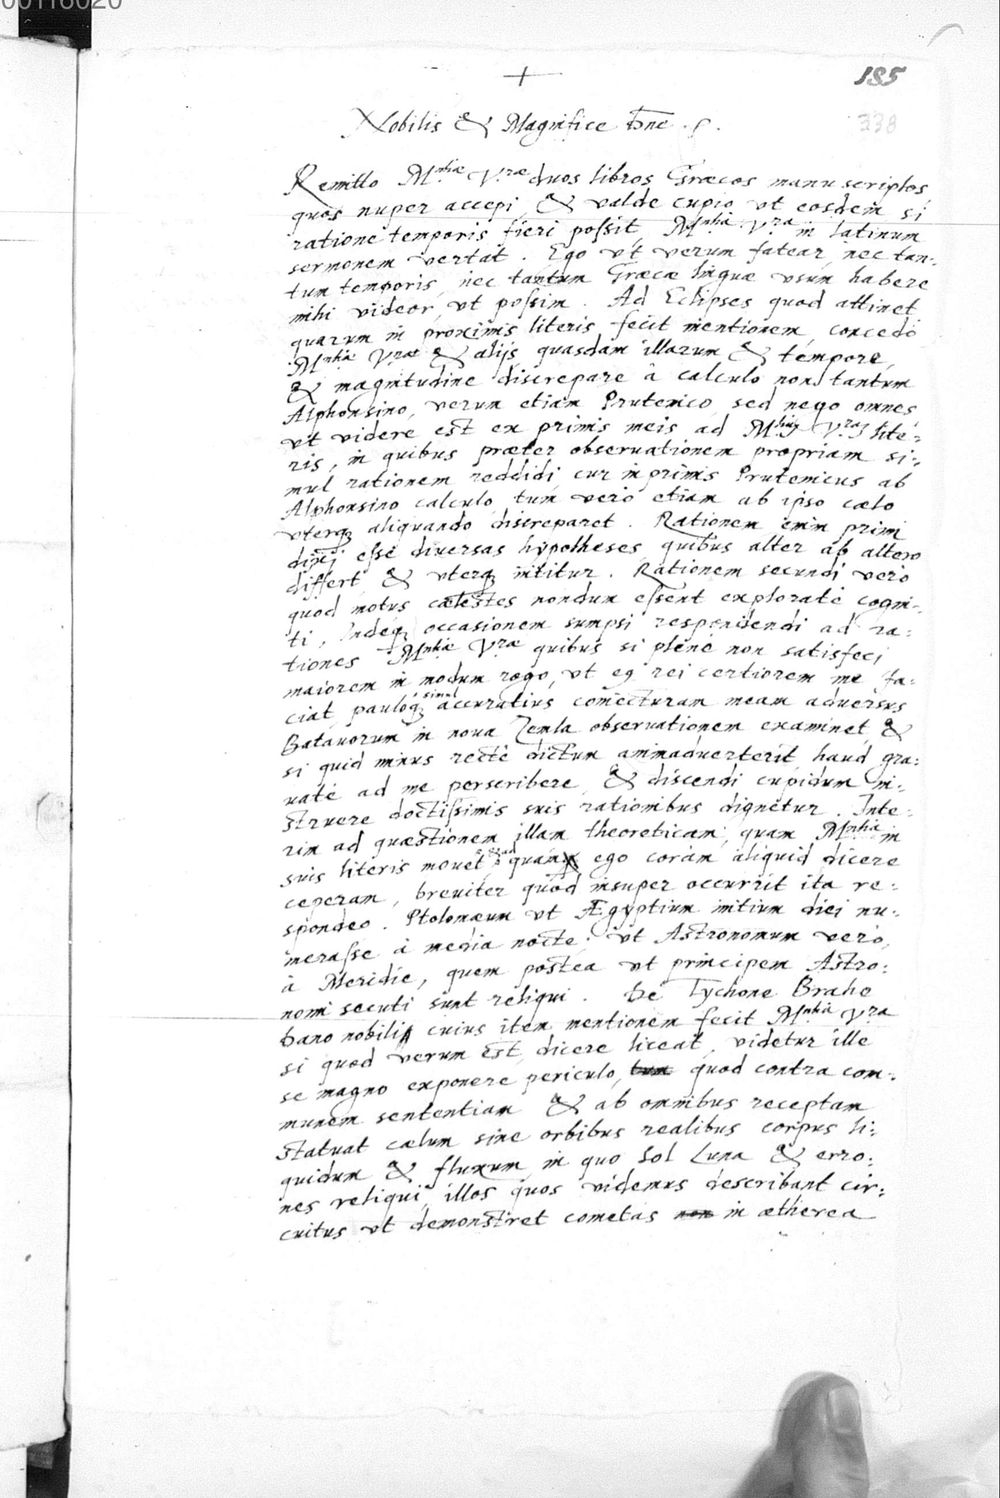 00116020
185
338
+
Nobilis & Magnifice Dne. S.
Remitto M.nhiæ V.ræ duos libros Græcos manu scriptos
quos nuper accepi, & valde cupio vt eosdem si
ratione temporis fieri possit, M.nhia V.ra in latinum
sermonem vertat. Ego vt verum fatear, nec tan-
tum temporis, nec tantum Græcæ linguæ vsum habere
mihi videor, vt possim. Ad Eclipses quod attinet
quarum in proximis literis fecit mentionem, concedo
M.nhiæ V.ræ & alijs quasdam illarum & tempore,
& magnitudine discrepare à calculo non tantum
Alphonsino, verum etiam Prutenico, sed nego omnes
vt videre est ex primis meis ad M. V.ras lite-
ris, in quibus præter obseruationem propriam si-
mul rationem reddidi, cur inprimis Prutenicus ab
Alphonsino calculo, tum vero etiam ab ipso cælo
vterq aliquando discreparet. Rationem enim primi
dixi esse diuersas hypotheses, quibus alter ab altero
differt & vterq nititur. Rationem secundi vero
quod motus cælestes nondum essent explorate cogni-
ti. Indeq occasionem sumpsi respondendi ad ra-
tiones M.nhiæ V.ræ quibus si plene non satisfeci
maiorem in modum rogo, vt eq rei certiorem me fa-
ciat pauloq simul accuratius coniecturam meam aduersus
Batauorum in noua Zemla obseruationem examinet &
si quid minus recte dictum animaduerterit, haud gra-
uate ad me perscribere, & discendi cupidum in-
struere doctissimis suis rationibus dignetur. Inte-
rim ad quæstionem illam theoreticam, quam M.nhia in
suis literis mouet & ad quam ego coram aliquid dicere
ceperam, breuiter quod insuper occurrit ita re-
spondeo. Ptolomæum vt Ægyptium initium diei nu-
merasse à media nocte: vt Astronomum vero,
à Meridie, quem postea vt principem Astro-
nomi secuti sunt reliqui. De Tychone Brahe
Dano nobili, cuius item mentionem fecit M.nhia V.ra
si quod verum est, dicere liceat, videtur ille
se magno exponere periculo, tum quod contra com-
munem sententiam & ab omnibus receptam
statuat cælum sine orbibus realibus corpus li-
quidum & fluxum, in quo Sol Luna & erro-
nes reliqui illos quos videmus describant cir-
cuitus vt demonstret cometas non in ætherea